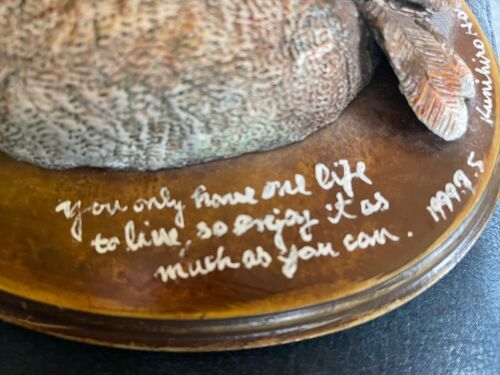 you only have one life
to live, so enjoy it as
much as you can.
1999.9.5
Kunihiro